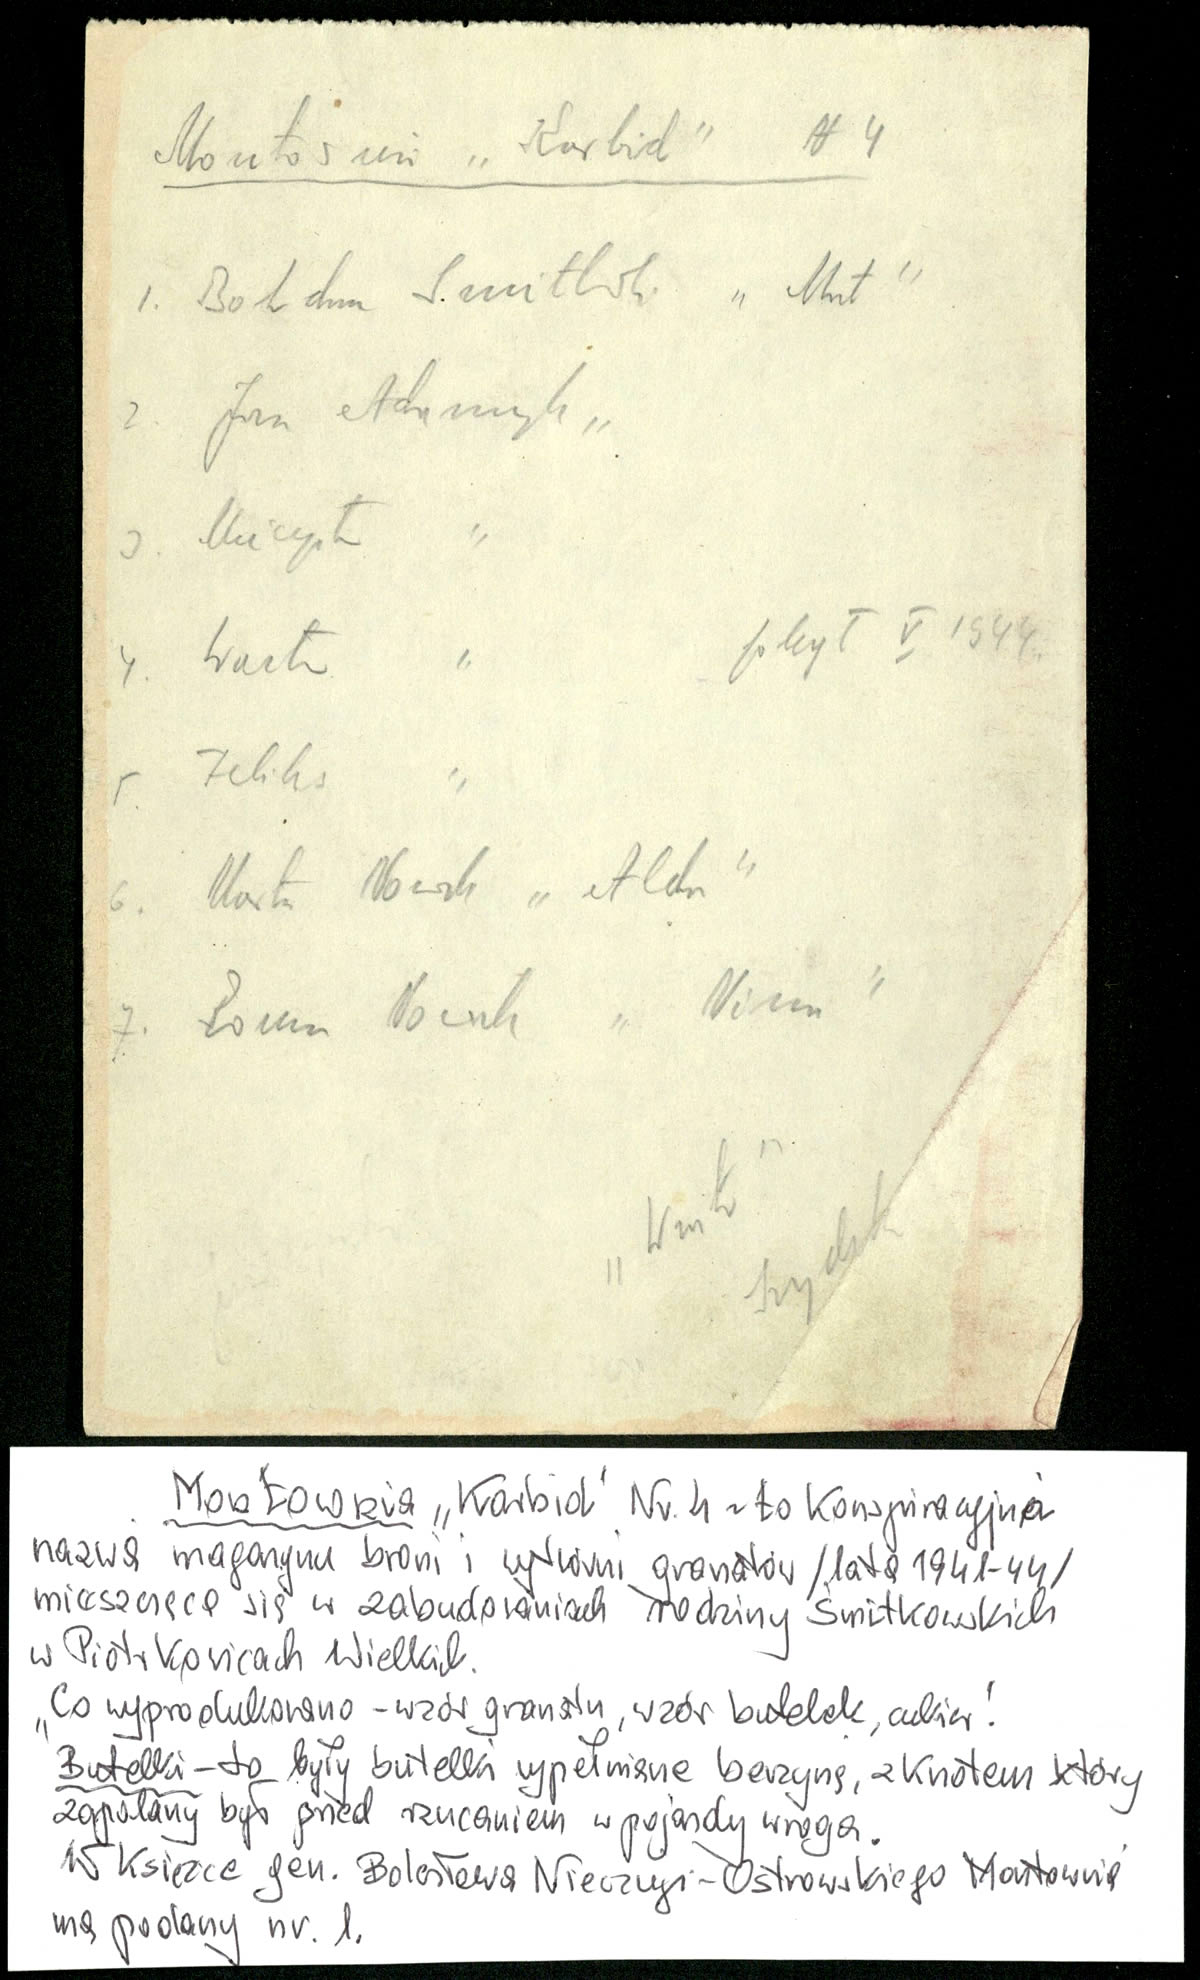 Montownia „Karbid" N 4
1. Bohdan Śmitkowski „Mat"
2. Jan Adamczyk „
3. Mieczysław „
4. „ V 1944
5. Feliks „
6. Marta Nowak „Alda"
7. Nowak „Nina"
Montownia „Karbid" Nr. 4 - to konspiracyjna
nazwa magazynu broni i wytwórni granatów /lata 1941-44/
mieszczące się w zabudowaniach rodziny Śmitkowskich
w Piotrkowicach Wielkich.
„Co wyprodukowano - wzór granatu, wzór butelek, cukier!
Butelki - to były butelki wypełniane benzyną, z knotem który
zapalany był przed rzucaniem w pojazdy wroga.
W książce gen. Bolesława Nieczuji-Ostrowskiego Montownia
ma podany nr. 1.